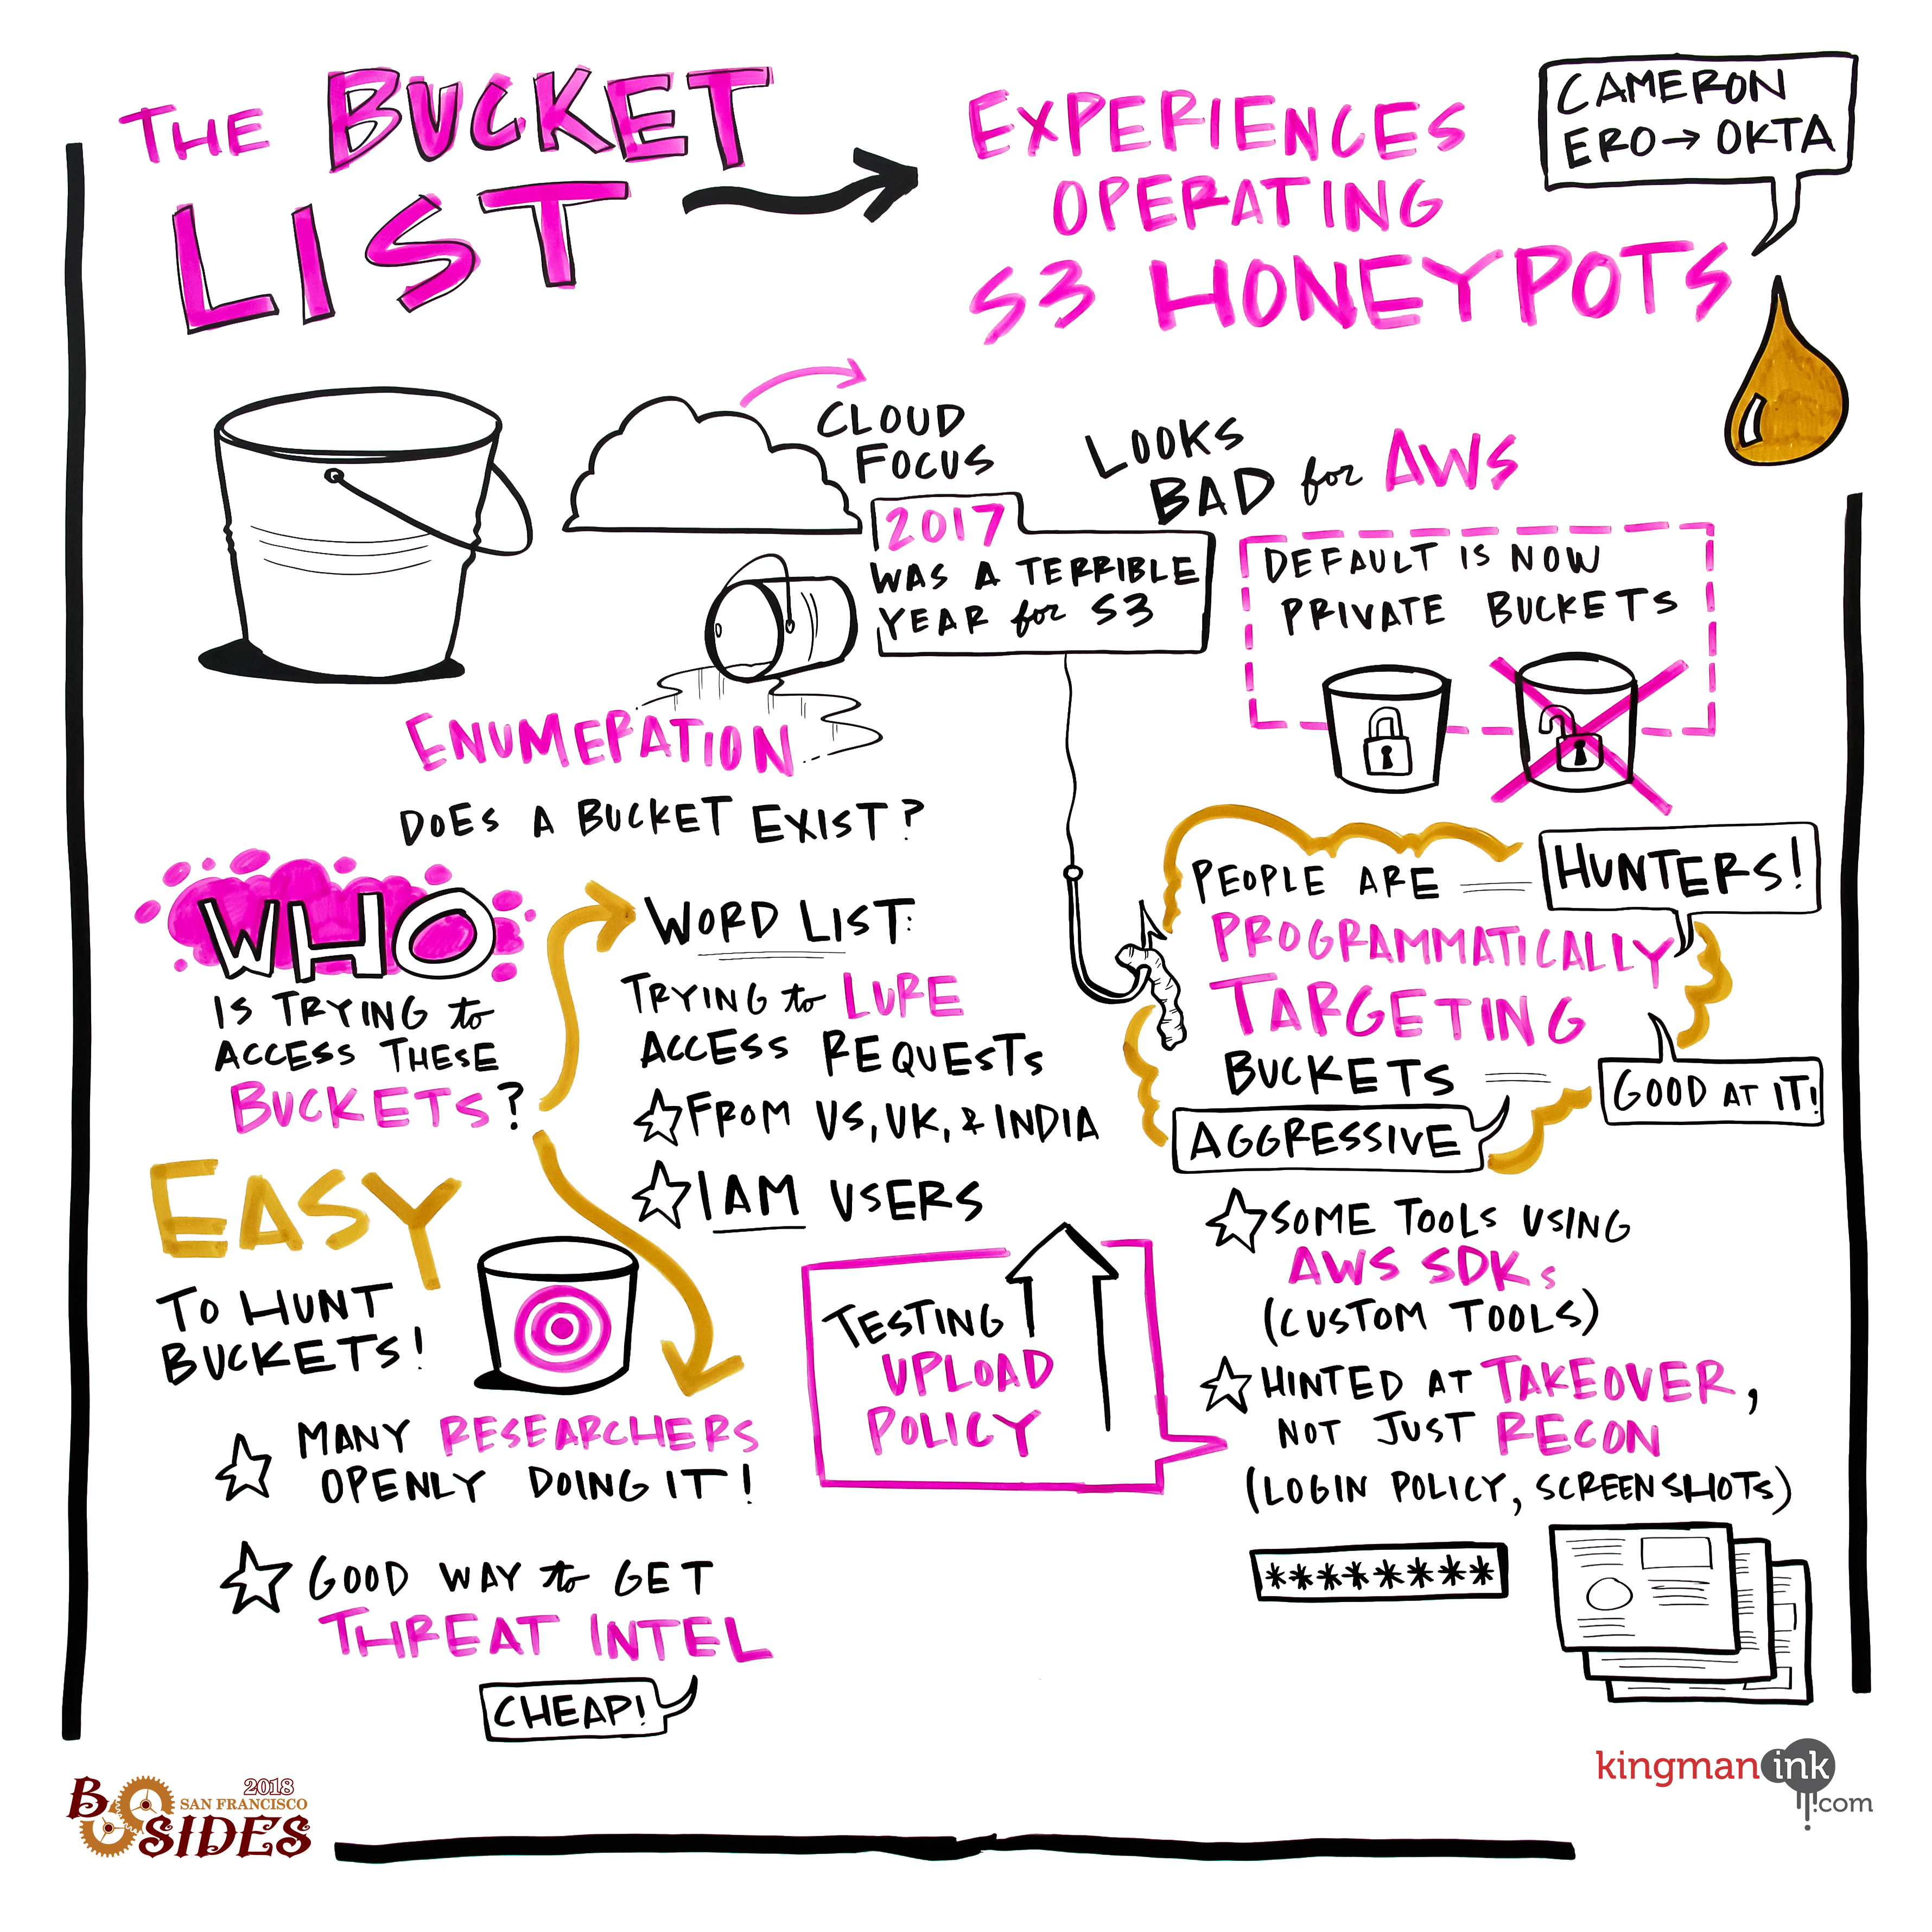 THE BUCKET
LIST
EXPERIENCES
OPERATING
S3 HONEYPOTS
CAMERON
ERO → OKTA
CLOUD
FOCUS
2017
WAS A TERRIBLE
YEAR for S3
LOOKS
BAD for AWS
DEFAULT IS NOW
PRIVATE BUCKETS
ENUMERATION
DOES A BUCKET EXIST?
WHO
IS TRYING to
ACCESS THESE
BUCKETS?
WORD LIST:
TRYING to LURE
ACCESS REQUESTS
☆ FROM US, UK, & INDIA
☆ IAM USERS
PEOPLE ARE
HUNTERS!
PROGRAMMATICALLY
TARGETING
BUCKETS
GOOD AT IT!
AGGRESSIVE
EASY
TO HUNT
BUCKETS!
☆ MANY RESEARCHERS
OPENLY DOING IT!
☆ GOOD WAY to GET
THREAT INTEL
CHEAP!
TESTING
UPLOAD
POLICY
☆ SOME TOOLS USING
AWS SDKs
(CUSTOM TOOLS)
☆ HINTED AT TAKEOVER,
NOT JUST RECON
(LOGIN POLICY, SCREENSHOTS)
********
2018
B SAN FRANCISCO
SIDES
kingman ink
.com